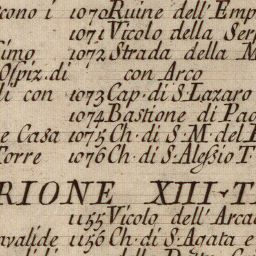 cono i 1070 Ruine dell' Emp
1071 Vicolo della Ser
simo 1072 Strada della M
Ospiz. di con Arco
li con 1073 Cap. di S. Lazaro
1074 Bastione di Pao
e Casa 1075 Ch. di S. M. del
Torre 1076 Ch. di S. Alessio
RIONE XIII
1155 Vicolo dell' Arca
avalide 1156 Ch. di S. Agata e